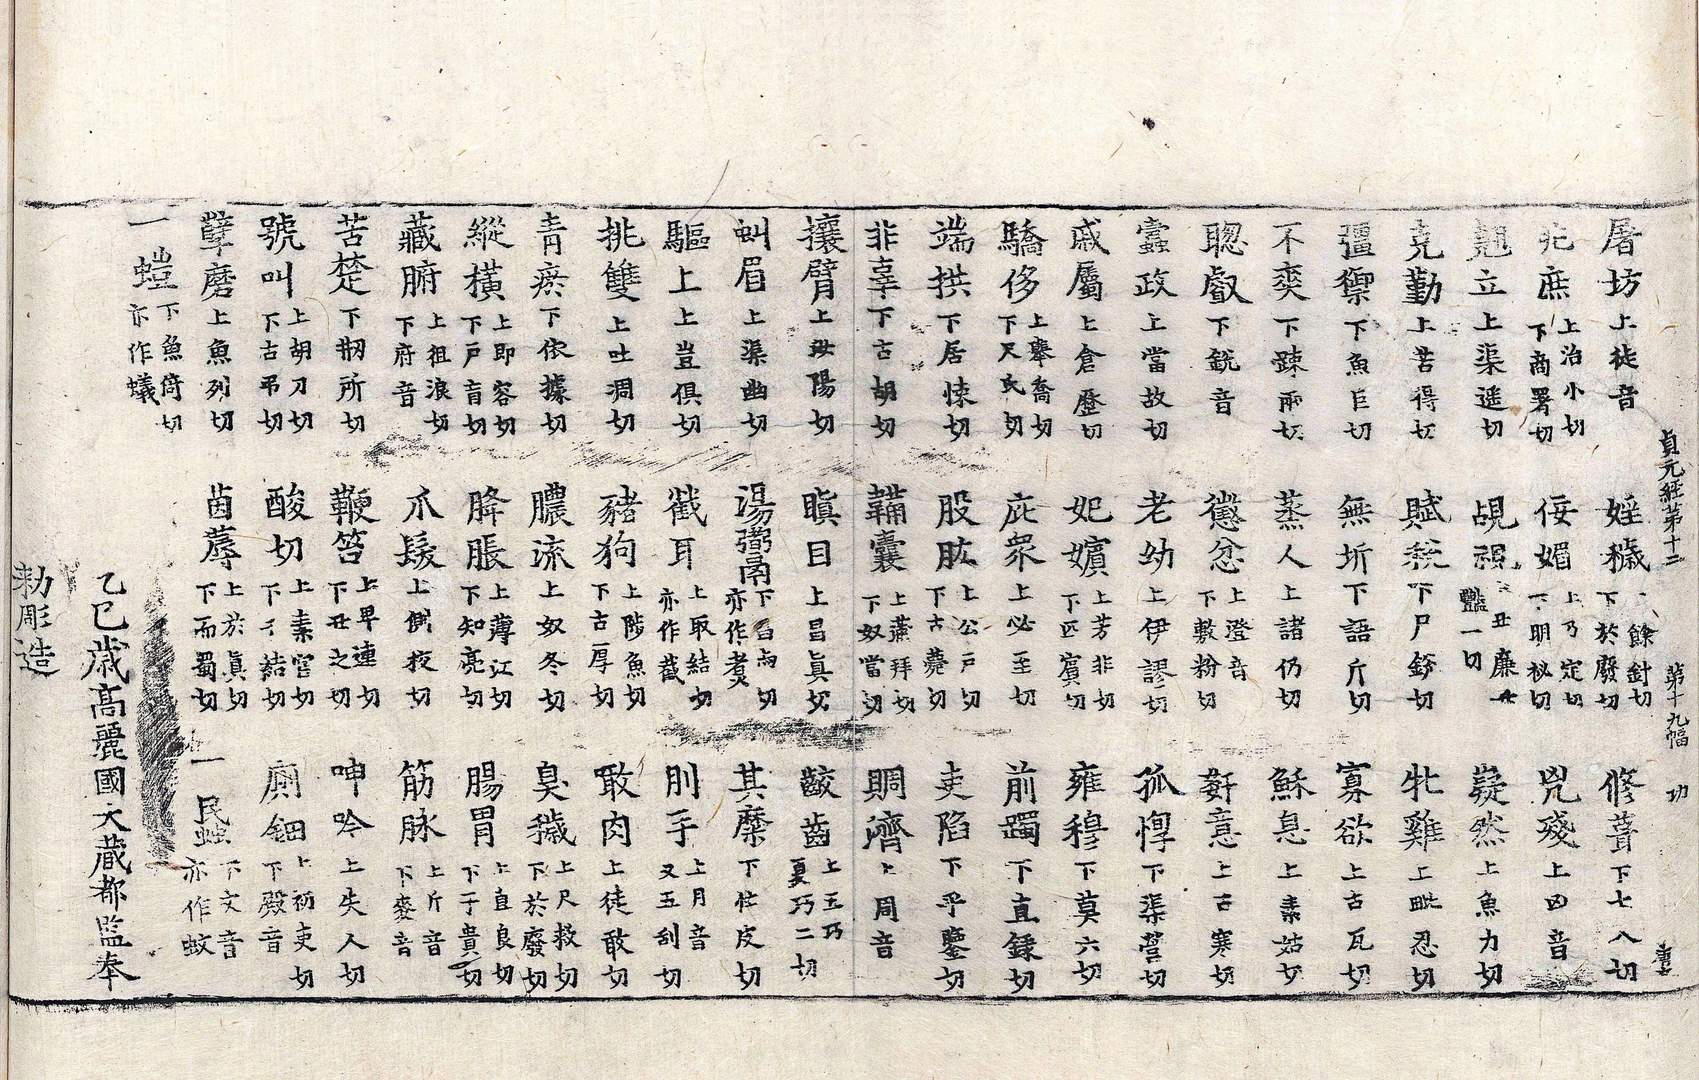 貞元經第十二 第十九幅 功
屠坊上徒音 婬穢上餘針切下於廢切 修葺下七入切
兆庶上治小切下商署切 佞媚上乃定切下明秘切 兇殘上凶音
翹立上渠遥切 覘 丑廉丑豔二切 嶷然上魚力切
克勤上苦得切 賦稅下尸銳切 牝雞上毗忍切
彊禦下魚巨切 無圻下語斤切 寡欲上古瓦切
不爽下踈兩切 蒸人上諸仍切 穌息上素姑切
聰叡下銳音 懲忿上澄音下敷粉切 姧意上古寒切
蠹政上當故切 老幼上伊謬切 孤惸下渠營切
戚屬上倉歷切 妃嬪上芳非切下匹賓切 雍穆下莫六切
驕侈上舉喬切下尺氏切 庇衆上必至切 前躅下直錄切
端拱下居悚切 股肱上公戶切下古薨切 吏陷下乎鑒切
非辜下古胡切 鞴囊上蒲拜切下奴當切 賙濟上周音
攘臂上汝陽切 瞋目上昌真切 齩齒上五巧五夏巧二切
虯眉上渠幽切 湯𩱦下昌兩切亦作煑 其縻下忙皮切
驅上上豈俱切 㦸耳上取結切亦作截 刖手上月音又五刮切
挑雙上吐凋切 豬狗上陟魚切下古厚切 敢肉上徒敢切
青瘀下依據切 膿流上奴冬切 臭穢上尺救切下於廢切
縱橫上即容切下戶盲切 胮脹上薄江切下知亮切 腸胃上直良切下于貴切
藏腑上祖浪切下府音 爪髮 筋脉上斤音下麥音
苦楚下刱所切 鞭笞上卑連切下丑之切 呻吟上失人切
號叫上胡刀切下古弔切 酸切上素官切下千結切 廁鈿上初吏切下殿音
孽磨上魚列切 茵蓐上於真切下而蜀切 一民䖟下文音亦作蚊
一螘下魚倚切亦作蟻
乙巳歲高麗國大藏都監奉
勑彫造